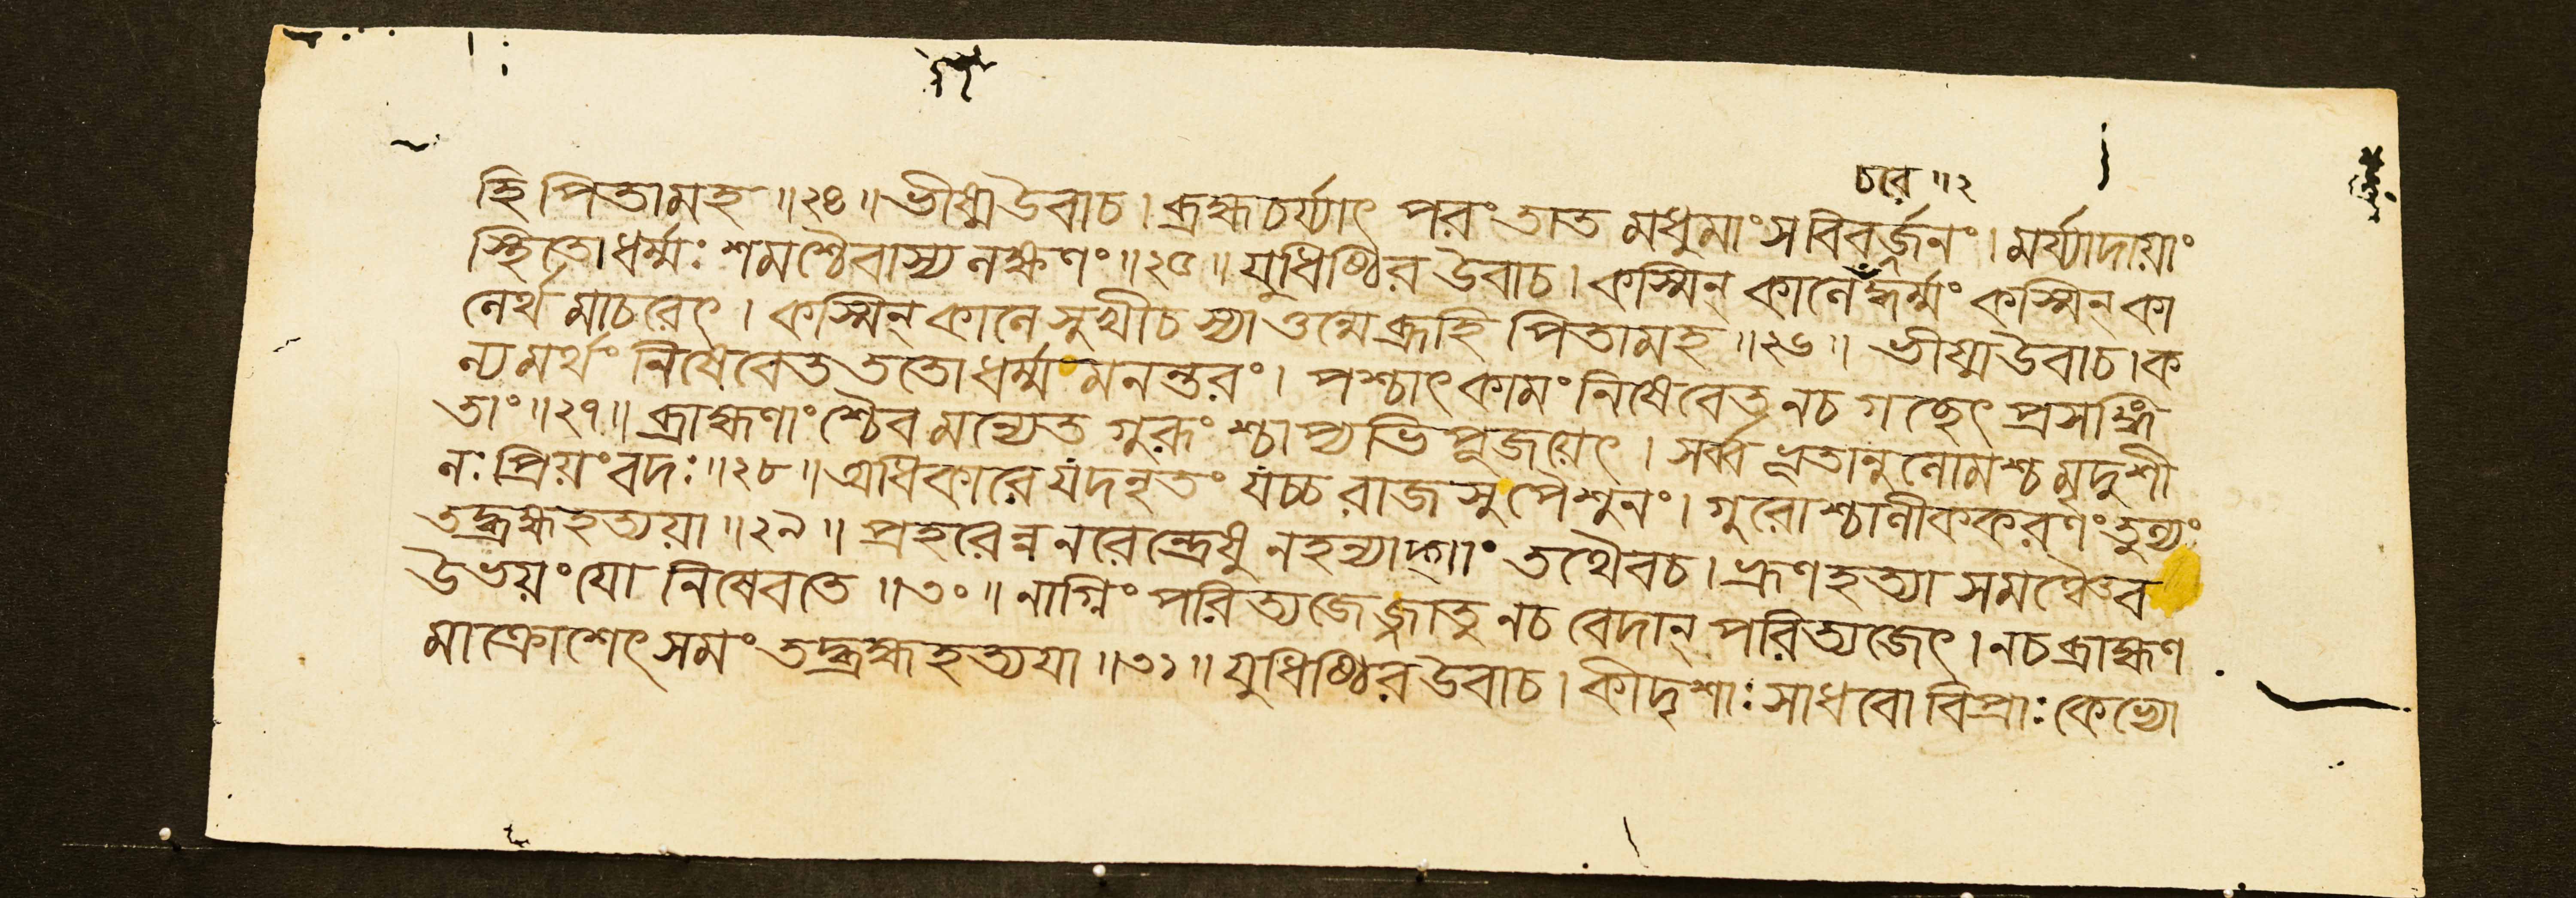 চরে ॥ ২
হি পিতামহ ॥ ২৪ ॥ ভীষ্ম উবাচ । ব্রহ্মচর্য্যাৎ পরং তাত মধুমাংসবিবর্জ্জনং । মর্য্যাদায়াং
স্থিতো ধর্ম্মঃ শমশ্চৈবাস্য লক্ষণং ॥ ২৫ ॥ যুধিষ্ঠির উবাচ । কস্মিন্ কালে দ্ধর্ম্মং কস্মিন্ কা
লের্থমাচরেৎ । কস্মিন্ কালে সুখী চ স্যাত্তন্মে ব্রূহি পিতামহ ॥ ২৬ ॥ ভীষ্ম উবাচ । ক
ল্যমর্থং নিষেবেত ততো ধর্ম্মমনন্তরং । পশ্চাৎ কামং নিষেবেত ন চ গচ্ছেৎ প্রসঙ্গি
তাং ॥ ২৭ ॥ ব্রাহ্মণাংশ্চৈব মন্যেত গুরূংশ্চাপ্যভিপূজয়েৎ । সর্ব্বভূতানুলোমশ্চ মৃদুশী
লঃ প্রিয়ংবদঃ ॥ ২৮ ॥ অধিকারে যদনৃতং যচ্চ রাজসু পৈশুনং । গুরোশ্চালীককরণং তুল্যং
তদ্ব্রহ্মহত্যয়া ॥ ২৯ ॥ প্রহরেন্ন নরেন্দ্রেষু ন হন্যাদ্গাং তথৈব চ । ভ্রূণহত্যাসমঞ্চৈব
উভয়ং যো নিষেবতে ॥ ৩০ ॥ নাগ্নিং পরিত্যজেজ্জাতু ন চ বেদান্ পরিত্যজেৎ । ন চ ব্রাহ্মণ
মাক্রোশেৎ সমং তদ্ব্রহ্মহত্যয়া ॥ ৩১ ॥ যুধিষ্ঠির উবাচ । কীদৃশাঃ সাধবো বিপ্রাঃ কেভ্যো